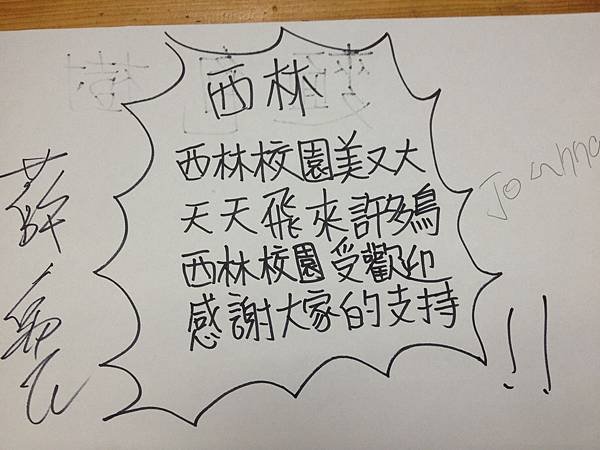 西林
西林校園美又大
天天飛來許多鳥
西林校園受歡迎
感謝大家的支持
!!
Joanna